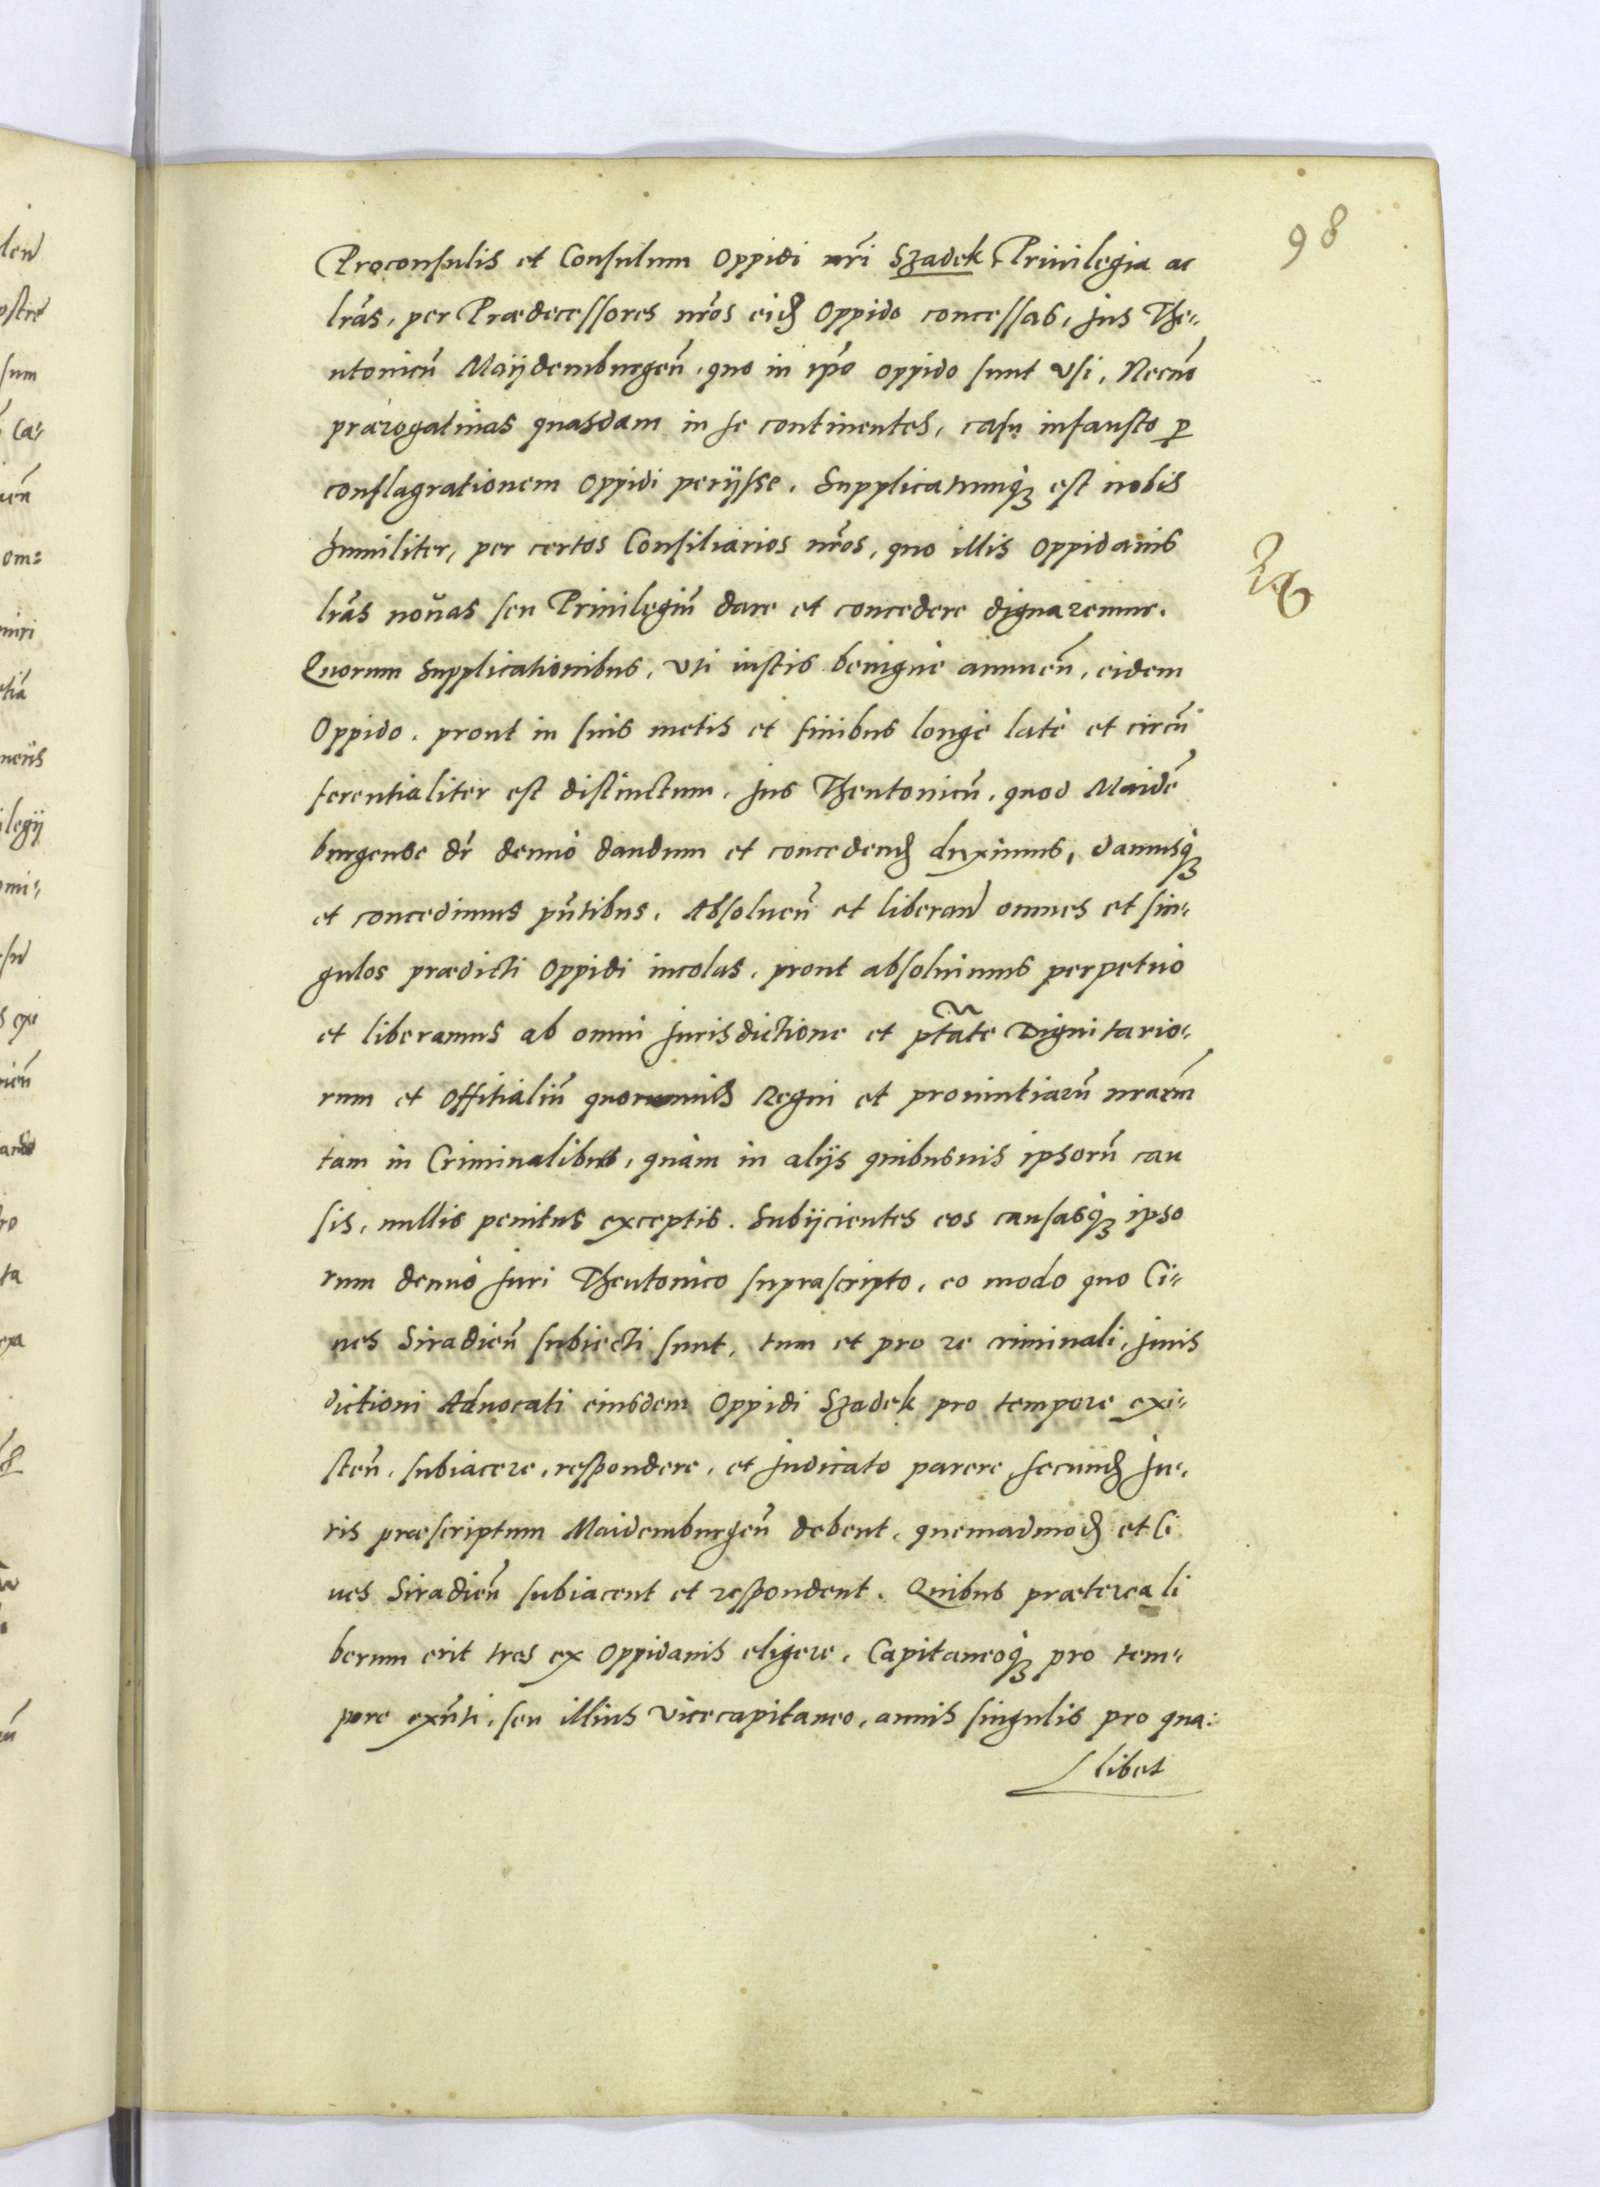 98
Proconsulis et Consulum Oppidi nr̃i Szadek Priuilegia ac
lr̃as, per Prædecessores nr̃os eidẽ Oppido concessas, Jus The„
utonicũ Maÿdemburgeñ, quo in ip̃o oppido sunt vsi, Necnõ
prærogatiuas quasdam in se continentes, casu infausto p̱
conflagrationem Oppidi perijsse. Supplicatumq́ȝ est nobis
humiliter, per certos Consiliarios nr̃os, quo illis Oppidanis
lr̃as nouas seu Priuilegiũ dare et concedere dignaremur.
Quorum Supplicationibus, vti iustis benigne annueñ, eidem
Oppido, prout in suis metis et finibus longè latè et circũ
ferentialiter est distinctum, Jus Theutonicũ, quod Maidẽ
burgense dr̃ denuò dandum et concedendũ duximus, damusq́ȝ
et concedimus pñtibus, Absolueñ et liberañ omnes et sin„
gulos prædicti Oppidi incolas, prout absoluimus perpetuò
et liberamus ab omni Jurisdictione et ptãte Dignitario„
rum et Offitialiũ quorumuis Regni et prouintiarũ nrarũm
tam in Criminalibus, quàm in alijs quibusuis ipsorũ cau
sis, nullis penitus exceptis. Subijcientes eos causasq́ȝ ipso
rum denuò Juri Theutonico suprascripto, eo modo quo Ci„
ues Siradieñ subiecti sunt, tum et pro re criminali, Juris
dictioni Aduocati eiusdem Oppidi Szadek pro tempore exi„
steñ, subiacere, respondere, et Judicato parere, secundũ Ju„
ris præscriptum Maidemburgeñ debent, quemadmodũ et Ci
ues Siradieñ subiacent et respondent. Quibus præterea li
berum erit tres ex Oppidanis eligere, Capitaneoq́ȝ pro tem„
pore exñti, seu illius Vicecapitaneo, annis singulis pro qua:
libet